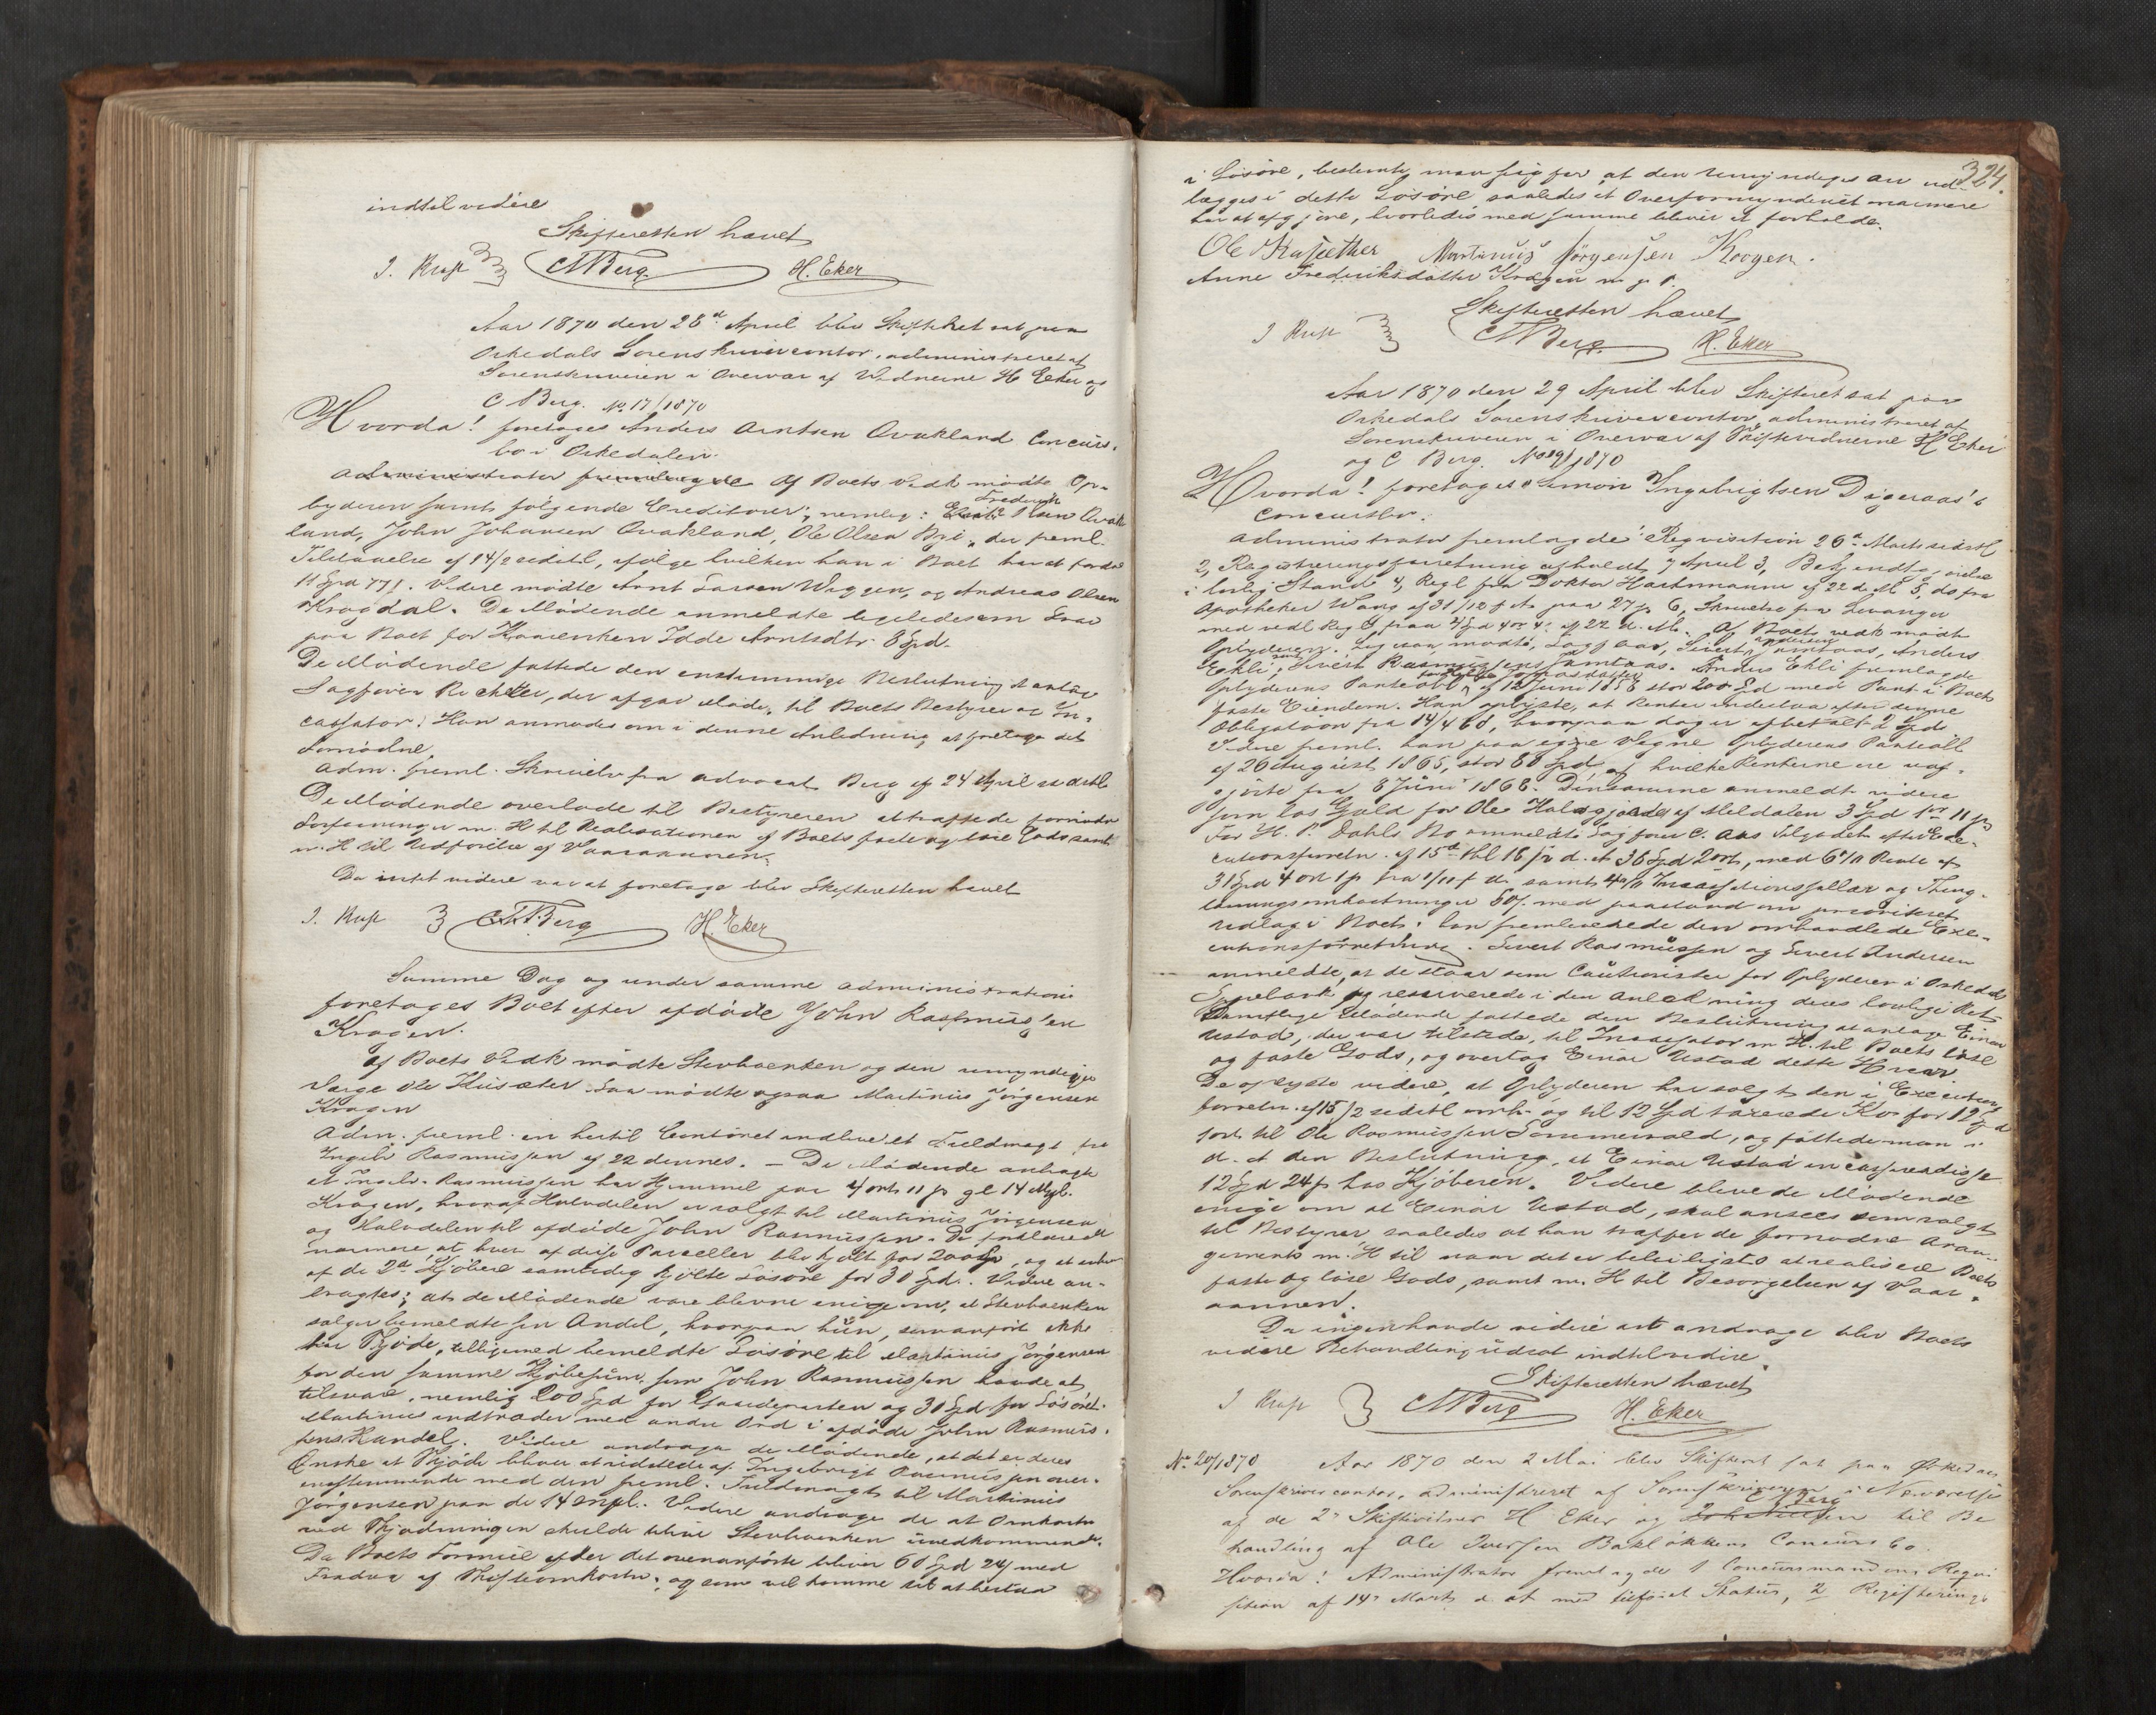 indtil videre
Skifteretten hævet
J. Rust CM Berg H. Eker
Aar 1870 den 28d April blev Skifteret sat paa
Orkedals Sorenskrivercontor, administreret af
Sorenskriveren i Overvær af Vidnerne H Eker og
C Berg. No 17/1870
Hvorda! foretoges Anders Arntsen Qvakland Concurs-
bo i Orkedalen.
Administrator fremlagde Af Boets Vedk. mødte Op-
byderen samt følgende Creditorer, nemlig: Frederik Olsen Qvak
land, John Johansen Qvakland, Ole Olsen Bye, der freml.
Tilstaaelse af 14/2 sidstl, ifølge hvilken han i Boet har at fordre
11 Spd 77 s. Videre mødte Arnt Larsen Wiggen, og Andreas Olsen
Krogdal. De Mødende anmeldte ligeledes som Krav
paa Boet for Kaarenken Idde Arntsdtr. 8 Spd.
De Mødende fattede den enstemmige Beslutning at antage
Sagfører Richter, der afgav Møde, til Boets Bestyrer og In-
cassator. Han anmodes om i denne Anledning at foretage det
Fornødne.
Adm. freml. Skrivelse fra Advocat Berg af 24 April sidstl
De Mødende overlode til Bestyreren at træffe de fornødne
Forføininger m. H til Realisationen af Boets faste og løse Gods samt
m. H til Udførelse af Vaaraannen.
Da intet videre var at foretage blev Skifteretten hævet
J. Rust CM Berg H. Eker
Samme Dag og under samme Administration
foretages Boet efter afdøde John Rasmussen
Krogen.
Af Boets Vedk mødte Stervboenken og den umyndiges
Værge Ole Husæter. Saa mødte ogsaa Martinus Jørgensen
Krogen
Adm. freml. en hertil Contoret indleveret Fuldmagt fra
Ingebr Rasmussen af 22 dennes. – De Mødende anbragte
at Ingebr. Rasmussen har Hjemmel paa 4 ort 11 s gl 14 Mpl.
Krogen, hvoraf Halvdelen er solgt til Martinus Jørgensen
og Halvdelen til afdøde John Rasmussen. De forklarede
nærmere, at hver af disse Parceller blev kjøbt for 200 Spd, og at enhver
af de 2de Kjøbere samtidig kjøbte Løsøre for 30 Spd. Videre an-
bragtes, at de Mødende vare blevne enige om, at Stervboenken
sælger bemeldte sin Andel, hvorpaa hun, som anført ikke
har Skjøde, tilligemed bemeldte Løsøre til Martinus Jørgensen
for den samme Kjøbesum, som John Rasmussen havde at
tilsvare, nemlig 200 Spd for Gaardparten og 30 Spd for Løsøret.
Martinus indtræder med andre Ord i afdøde John Rasmus-
sens Handel. Videre androge de Mødende, at det er deres
Ønske at Skjøde bliver at udstede af Ingebrigt Rasmussen over-
ensstemmende med den freml. Fuldmagt til Martinus
Jørgensen paa de 14 Mpl. Videre androge de at Omkostn
ved Skjødningen skulde blive Stervboenken uvedkommende.
Da Boets Formue efter det ovenanførte bliver 60 Spd 24 s med
Fradrag af Skifteomkostn., og som vil komme til at bestaa
324.
i Løsøre, bestemte man sig for, at den umyndiges Arv ud-
lægges i dette Løsøre, saaledes at Overformynderiet nærmere
har at afgjøre, hvorledes med samme bliver at forholde.
Ole Husæther Martinus Jörgensen Krogen.
Anne Frederiksdatter Krogen m. p. P.
Skifteretten hævet
J Rust CM Berg H. Eker
Aar 1870 den 29 April blev Skifteret sat paa
Orkedals Sorenskrivercontor, administreret af
Sorenskriveren i Overvær af Skiftevidnerne H Eker
og C Berg. No 19/1870
Hvorda! foretoges Simon Ingebrigtsen Digeraas's
Concursbo.
Administrator fremlagde 1 Reqvisition 26d Marts sidstl
2, Registreringsforretning afholdt 7 April 3, Bekjendtgjørelse
i lovlig Stand 4, Regl fra Doktor Hartmann af 22 d. M. 5, do fra
Apotheker Wang af 31/12 f. A. paa 27 s. 6, Skrivelse fra Levanger
med vedl Reg paa 2 Spd 4 ort 4 s af 22 d. M. Af Boets vedk mødte
Opbyderen. Ligesaa mødte, Sagf Aas, Sivert Andersen Jamtaas, Anders
Ekli, samt Sivert Rasmussen Jamtaas. Anders Ekli fremlagde
Opbyderens Panteobl af 12 Juni 1858 stor 200 Spd med Pant i Boets
faste Eiendom. Han oplyste, at Renter indestaa efter denne
Obligation fra 14/4 68, hvorpaa dog er afbetalt 2 Spd.
Videre freml. han paa egne Vegne Opbyderens Panteobl
af 26 August 1865, stor 60 Spd, af hvilke Renterne ere uaf-
gjorte fra 8 Juni 1868. Densamme anmeldte videre
som løs Gjæld for Ole Halsgjerde af Meldalen 3 Spd 1 ort 11 s
For H. P. Dahls Bo anmeldte Sagfører C. Aas Tilgodeh. efter Exe-
cutionsforretn. af 15de tbl 18 fr d. A 36 Spd 2 ort, med 6% Rente af
31 Spd 4 ort 1 s fra 1/11 f A. samt 4% Incassationssallær og Thing-
læsningsomkostninger 50 s. med Paastand om prioriteret
Udlæg i Boet; han fremleverede den omhandlede Exe-
cutionsforretning. Sivert Rasmussen og Sivert Andersen
anmeldte, at de staar som Cautionister for Opbyderen i Orkedals
Sparebank og reserverede i den Anledning deres lovlige Ret.
Samtlige Mødende fattede den Beslutning at antage Einar
Ustad, der var tilstede, til Incassator m H. til Boets løse
og faste Gods, og overtog Einar Ustad dette Hverv.
De oplyste videre, at Opbyderen har solgt den i Executions
forretn. af 15/2 sidstl omh. og til 12 Spd taxerede Ko for 12 Spd
1 ort til Ole Rasmussen Sommervold, og fattede man i
d. A den Beslutning, at Einar Ustad incasserer disse
12 Spd 24 s hos Kjøberen. Videre bleve de Mødende
enige om at Einar Ustad, skal ansees som valgt
til Bestyrer saaledes at han træffer de fornødne Aran-
gements m. H til naar det er beleiligst at realisere Boets
faste og løse Gods, samt m. H til Besørgelsen af Vaar-
aannen.
Da ingen havde videre at andrage blev Boets
videre Behandling udsat indtil videre.
Skifteretten hævet
J Rust CM Berg H. Eker
No 20/1870 Aar 1870 den 2 Mai blev Skifteret sat paa Ørkedals
Sorenskrivercontor, administreret af Sorenskriveren i Nærværelse
af de 2de Skiftevitner H Eker og C Berg til Be
handling af Ole Iversen Bakløkkens Concursbo.
Hvorda! Administrator fremlagde 1 Concursmandens Reqvi
sition af 14de Marts d. A. med tilføiet Status, 2 Registerings